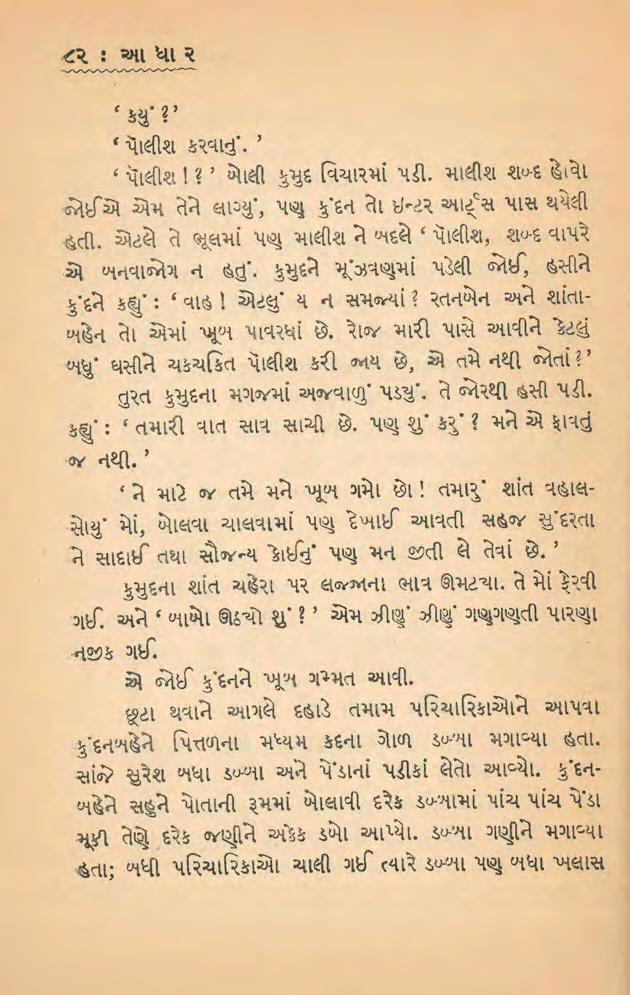 ૮૨ : આ ધા ર
‘ કયું ?’
‘ પૉલીશ કરવાનું. ’
‘ પૉલીશ ! ? ’ બોલી કુમુદ વિચારમાં પડી. માલીશ શબ્દ હોવો
જોઈએ એમ તેને લાગ્યું, પણ કુંદન તો ઇન્ટર આર્ટ્સ પાસ થયેલી
હતી. એટલે તે ભૂલમાં પણ માલીશ ને બદલે ‘ પૉલીશ, શબ્દ વાપરે
એ બનવાજોગ ન હતું. કુમુદને મૂંઝવણમાં પડેલી જોઈ, હસીને
કુંદને કહ્યું : ‘ વાહ ! એટલું ય ન સમજ્યાં ? રતનબેન અને શાંતા-
બહેન તો એમાં ખૂબ પાવરધાં છે. રોજ મારી પાસે આવીને કેટલું
બધું ઘસીને ચકચકિત પૉલીશ કરી જાય છે, એ તમે નથી જોતાં ?’
તુરત કુમુદના મગજમાં અજવાળું પડ્યું. તે જોરથી હસી પડી.
કહ્યું : ‘ તમારી વાત સાવ સાચી છે. પણ શું કરું ? મને એ ફાવતું
જ નથી. ’
‘ ને માટે જ તમે મને ખૂબ ગમો છો ! તમારું શાંત વહાલ-
સોયું મોં, બોલવા ચાલવામાં પણ દેખાઈ આવતી સહજ સુંદરતા
ને સાદાઈ તથા સૌજન્ય કોઈનું પણ મન જીતી લે તેવાં છે. ’
કુમુદના શાંત ચહેરા પર લજ્જાના ભાવ ઊમટ્યા. તે મોં ફેરવી
ગઈ. અને ‘ બાબો ઊઠ્યો શું ? ’ એમ ઝીણું ઝીણું ગણગણતી પારણા
નજીક ગઈ.
એ જોઈ કુંદનને ખૂબ ગમ્મત આવી.
છૂટા થવાને આગલે દહાડે તમામ પરિચારિકાઓને આપવા
કુંદનબહેને પિત્તળના મધ્યમ કદના ગોળ ડબ્બા મગાવ્યા હતા.
સાંજે સુરેશ બધા ડબ્બા અને પેંડાનાં પડીકાં લેતો આવ્યો. કુંદન-
બહેને સહુને પોતાની રૂમમાં બોલાવી દરેક ડબ્બામાં પાંચ પાંચ પેંડા
મૂકી તેણે દરેક જણીને અકેક ડબો આપ્યો. ડબ્બા ગણીને મગાવ્યા
હતા; બધી પરિચારિકાઓ ચાલી ગઈ ત્યારે ડબ્બા પણ બધા ખલાસ